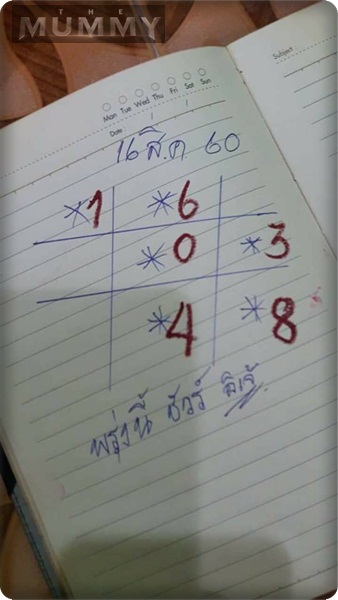 THE
MUMMY
Subject
Mon Tue Wed Thu Fri Sat Sun
Date
16 ส.ค 60
*1 *6
*0 *3
*4 *8
พรุ่งนี้ ชัวร์